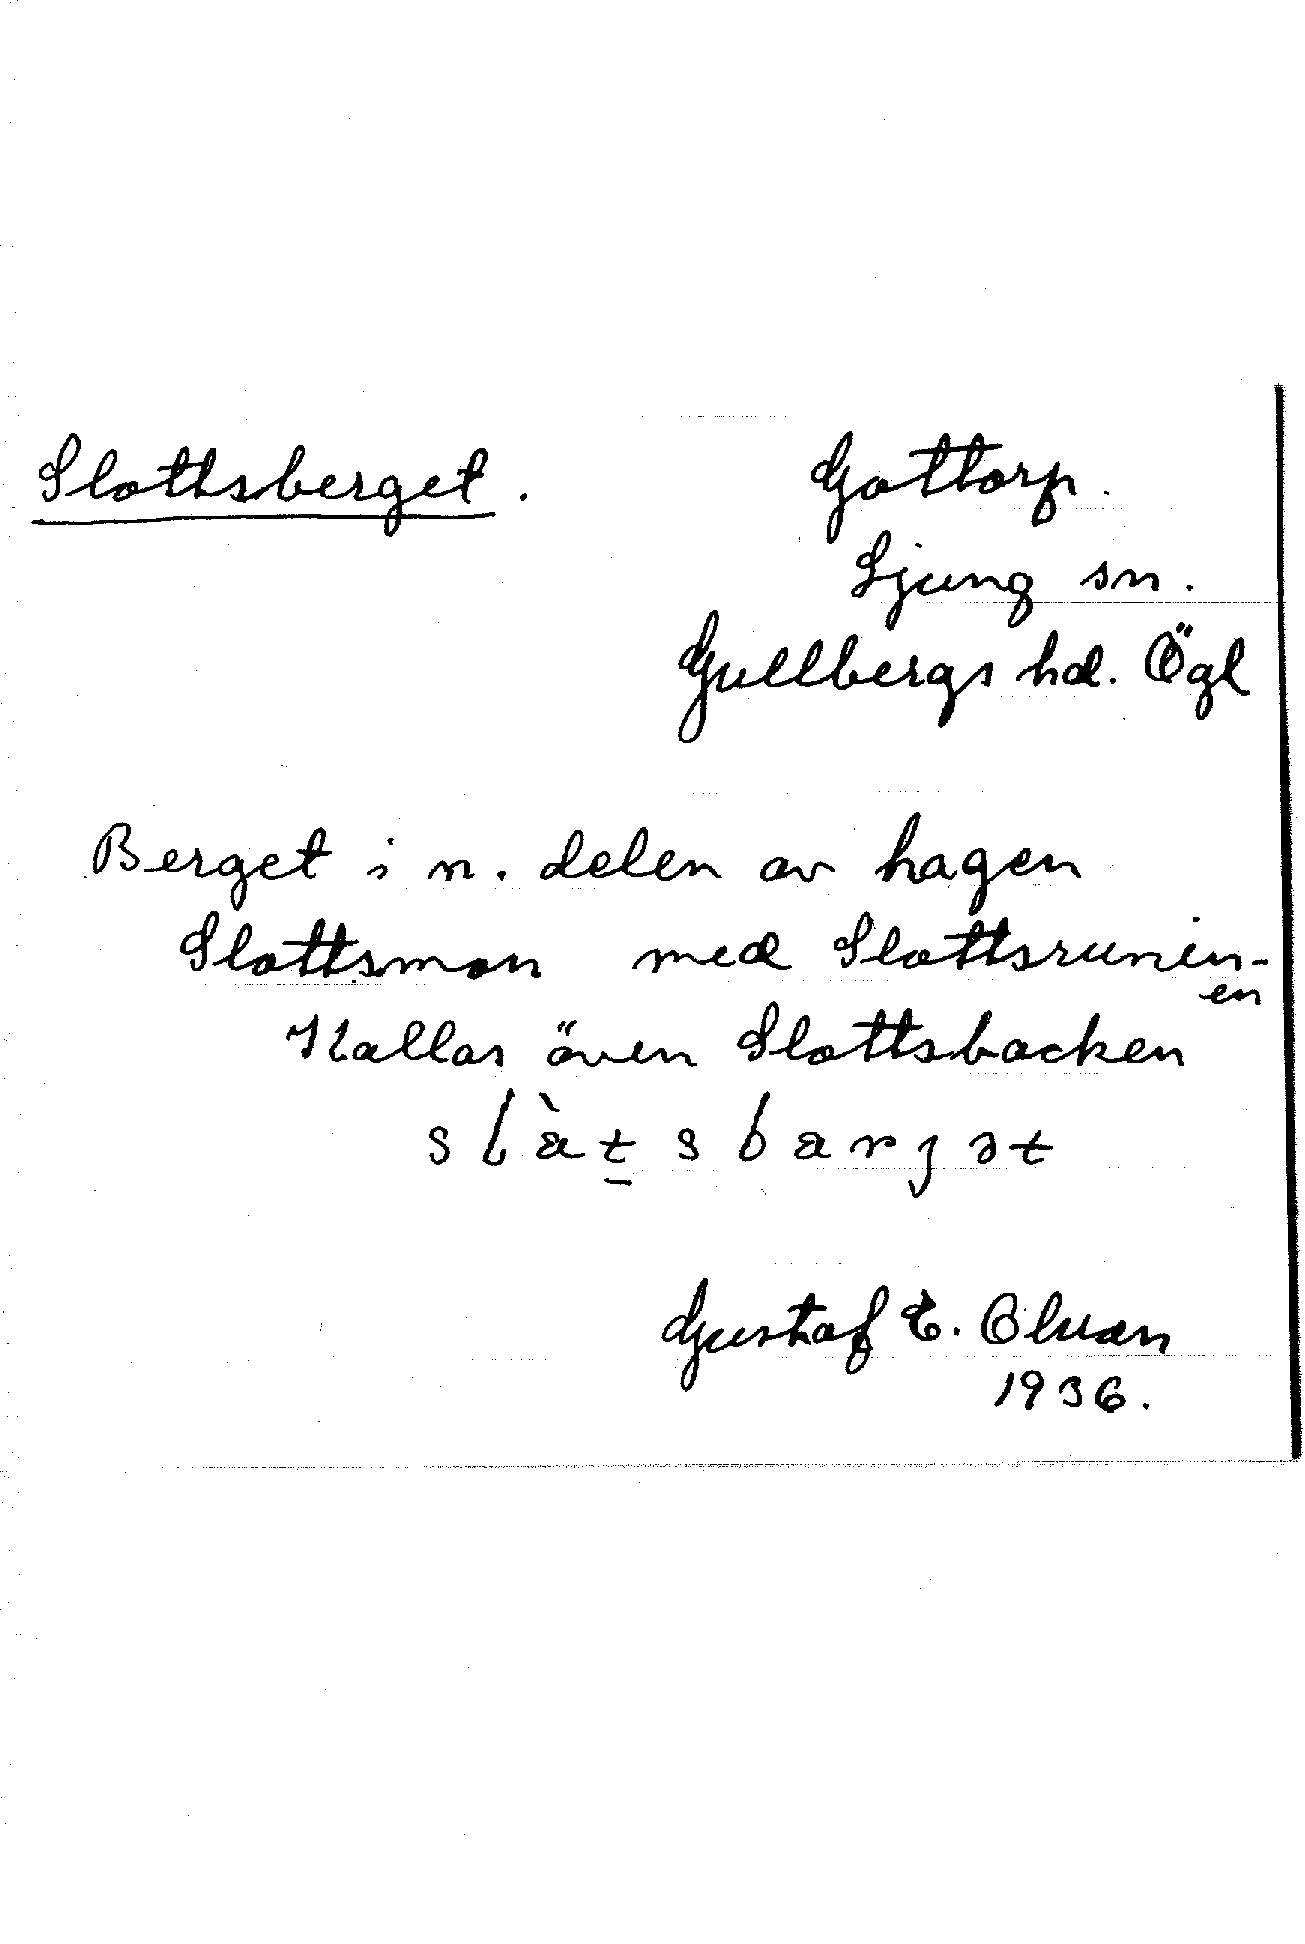 Slottsberget.
Gottorp.
Ljung sn.
Gullbergs hd. Ögl
Berget i n. delen av hagen
Slottsmon med Slottsruninen
Kallas även Slottsbacken
Gustaf E.
1936.